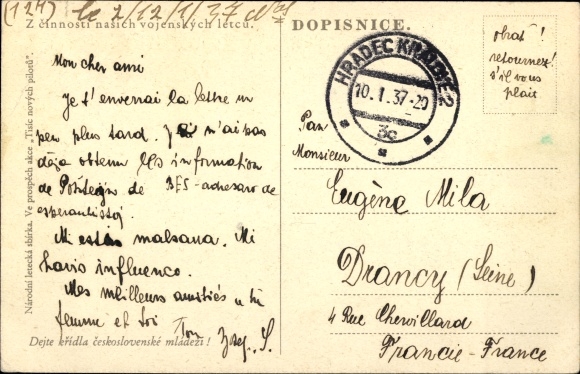 (124) le 2/12/1/37
Z činnosti našich vojenských letců.
DOPISNICE.
obrať!
retournez!
s'il vous
plait
HRADEC KRÁLOVÉ 2
10.I.37-20
3c
Národní letecká sbírka. Ve prospěch akce „Tisíc nových pilotů".
Mon cher ami
Je t'enverrai la lettre un
peu plus tard. Je n'ai pas
déja obtenu les information
de
de BES-adresaro de
esperantistoj.
Mi estas malsana. Mi
havis influenco.
Mes meilleurs amitiés a ta
femme et toi
Ton Josef S.
Dejte křídla československé mládeži!
Pan
Monsieur
Eugène Mila
Drancy (Seine)
4 Rue Chevillard
Francie-France